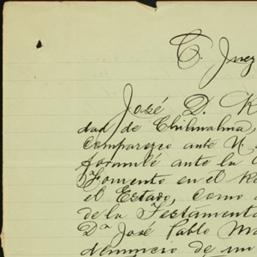 C. Juez
José D. R
dad de Chihuahua,
comparezco ante U.
formulé ante la
Fomento en el R
el Estado, como
de la Testamenta
Dn José Pablo M
denuncio de un